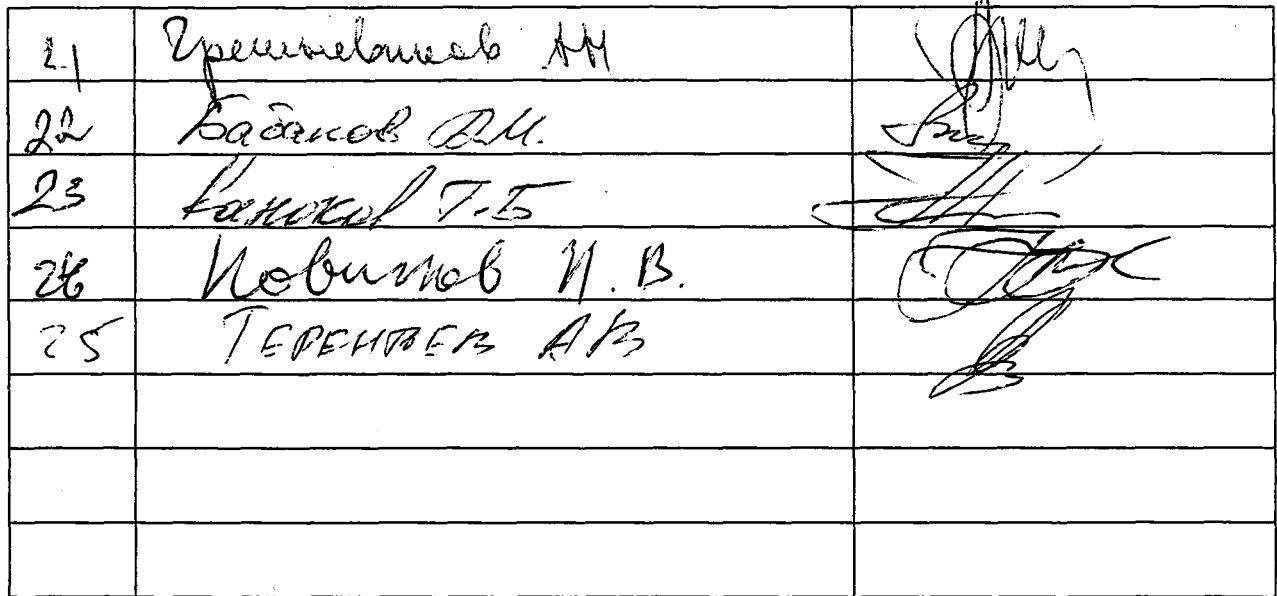 21 Грешневиков АН
22 Бабаков В.М.
23 Каноков Т.Б
24 Новиков И.В.
25 ТЕРЕНТЬЕВ АВ